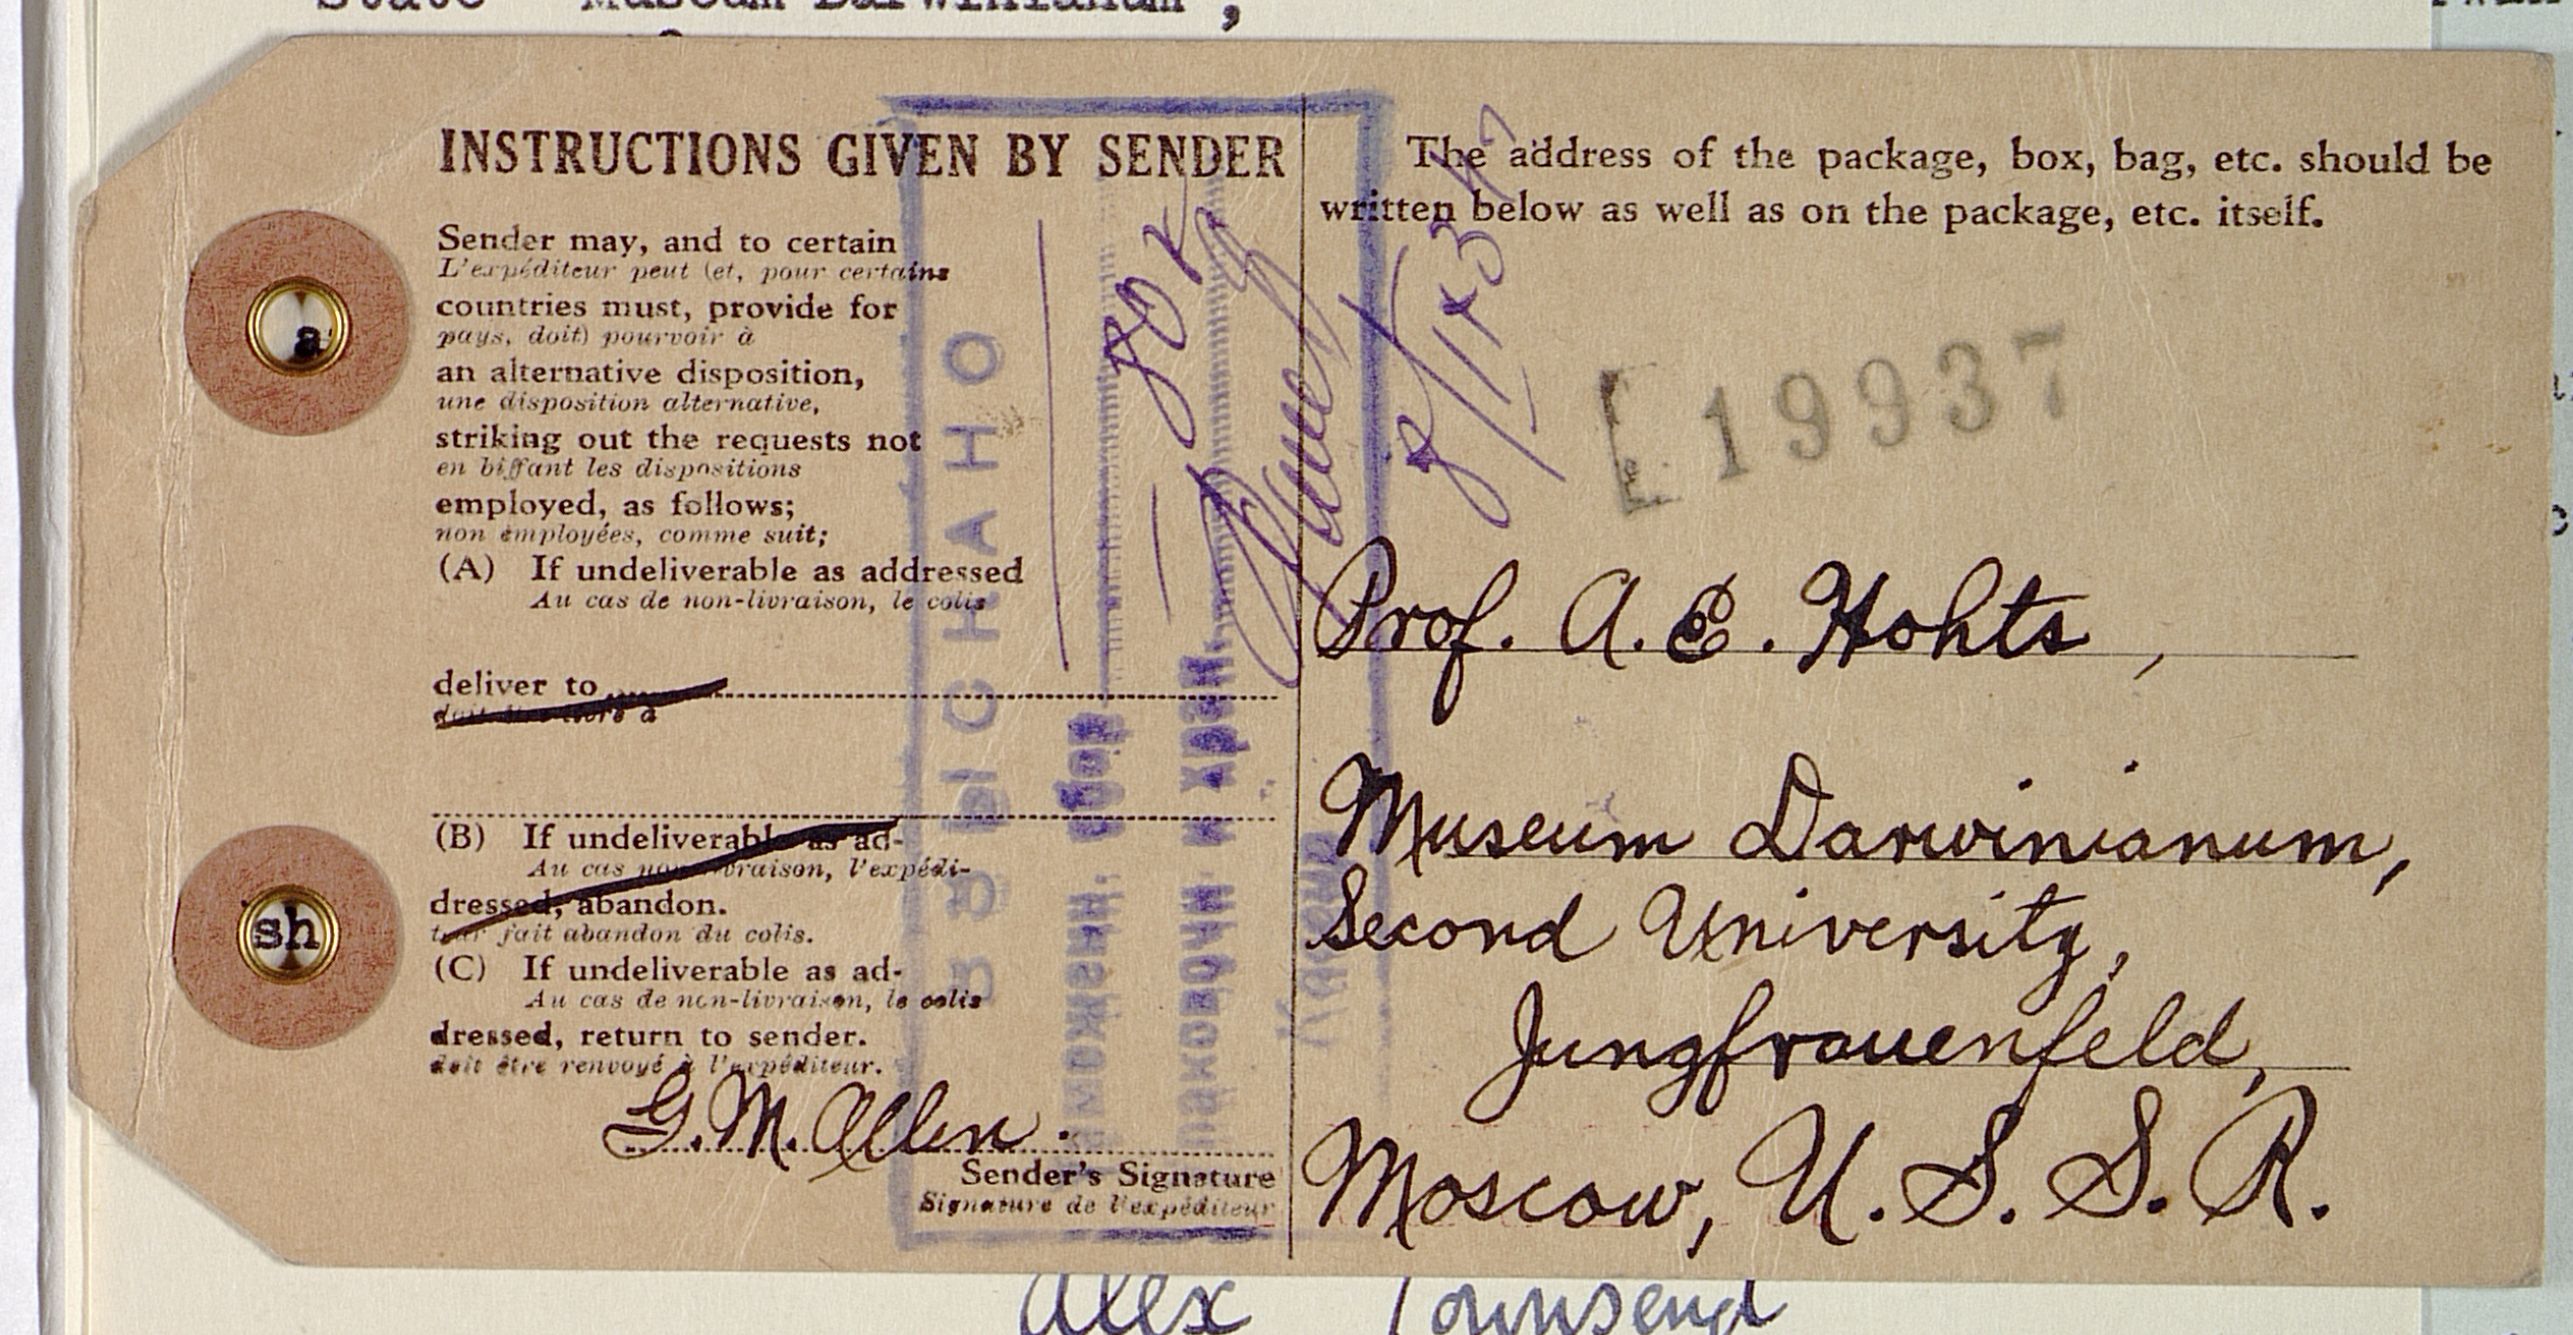 State "Museum Darwinianum",
INSTRUCTIONS GIVEN BY SENDER
Sender may, and to certain
L'expéditeur peut (et, pour certains
countries must, provide for
pays, doit) pourvoir à
an alternative disposition,
une disposition alternative,
striking out the requests not
en biffant les dispositions
employed, as follows;
non employées, comme suit;
(A) If undeliverable as addressed
Au cas de non-livraison, le colis
deliver to
doit être livré à
(B) If undeliverable as ad-
Au cas non-livraison, l'expédi-
dressed, abandon.
teur fait abandon du colis.
(C) If undeliverable as ad-
Au cas de non-livraison, le colis
dressed, return to sender.
doit être renvoyé à l'expéditeur.
G. M. Allen.
Sender's Signature
Signature de l'expéditeur
The address of the package, box, bag, etc. should be
written below as well as on the package, etc. itself.
19937
Prof. A. E. Hohts,
Museum Darwinianum,
Second University,
Jungfrauenfeld,
Moscow, U. S. S. R.
a
sh
Alex Townsend